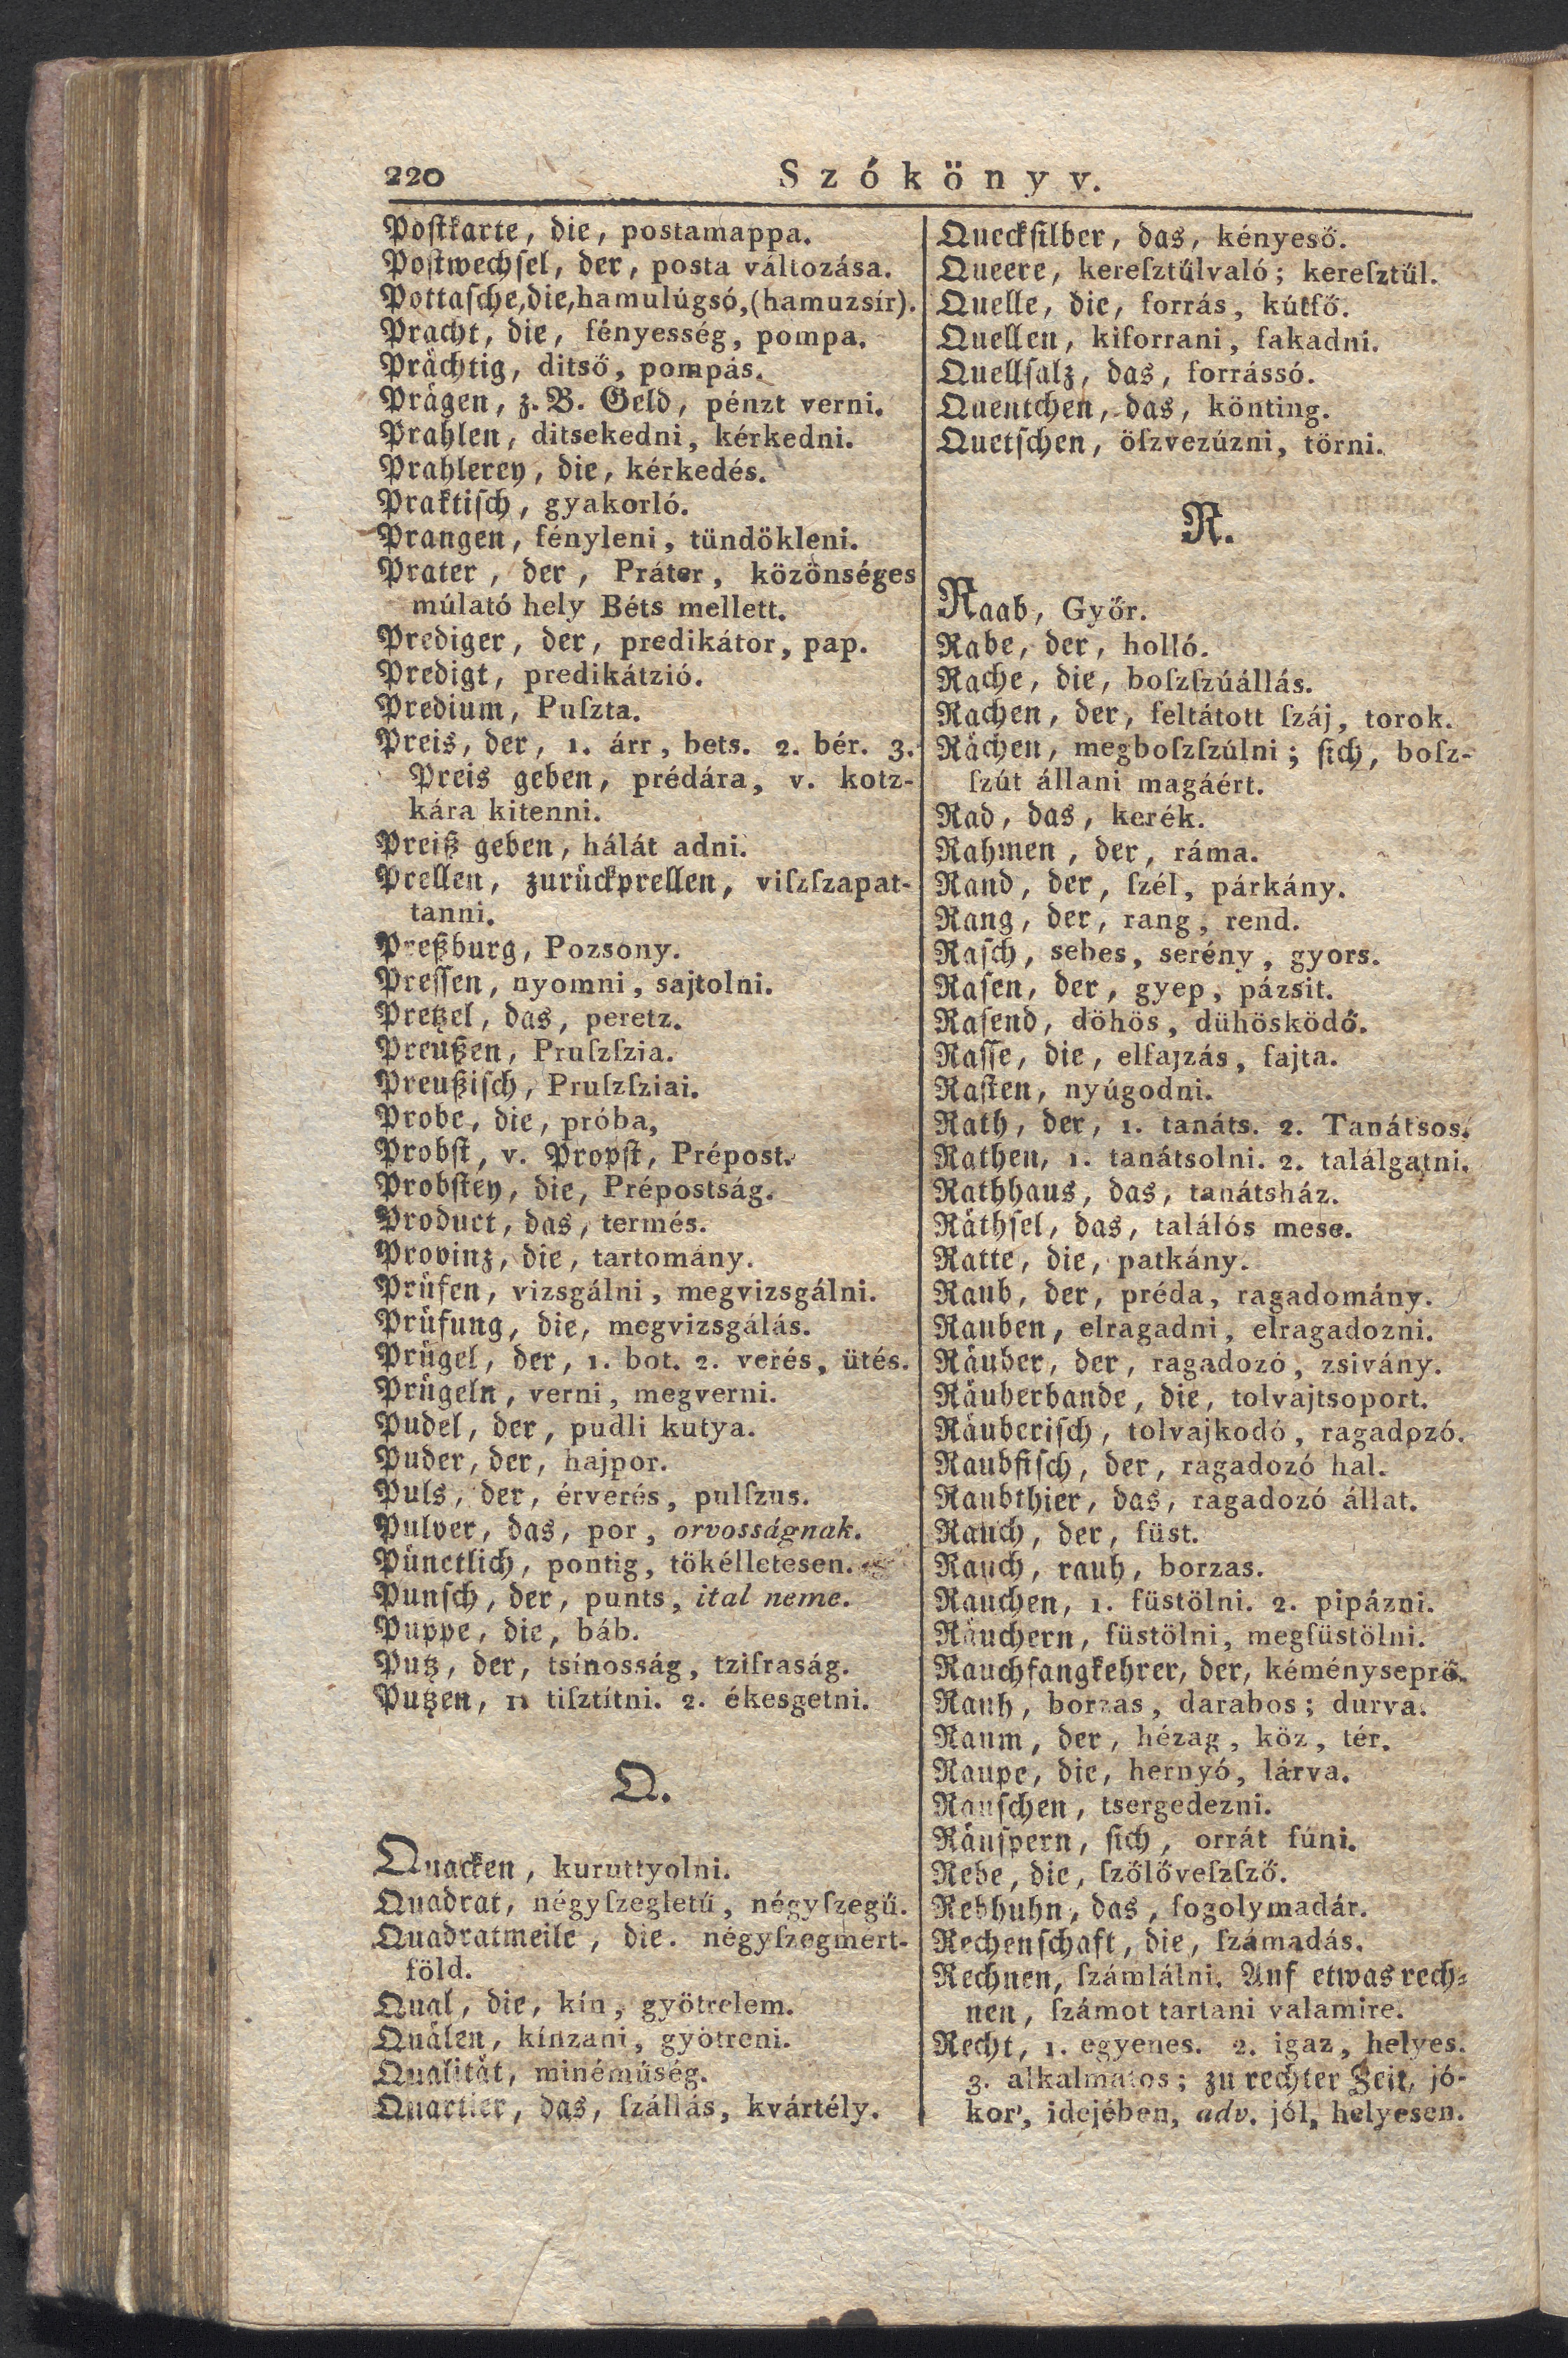 220
Szókönyv.
Poſtkarte, die, postamappa.
Poſtwechſel, der, posta változása.
Pottaſche, die, hamulúgsó, (hamuzsír).
Pracht, die, fényesség, pompa.
Prächtig, ditső, pompás.
Prägen, z. B. Geld, pénzt verni.
Prahlen, ditsekedni, kérkedni.
Prahlerey, die, kérkedés.
Praktiſch, gyakorló.
Prangen, fényleni, tündökleni.
Prater, der, Práter, közönséges
múlató hely Béts mellett.
Prediger, der, predikátor, pap.
Predigt, predikátzió.
Predium, Puſzta.
Preis, der, 1. árr, bets. 2. bér. 3.
Preis geben, prédára, v. kotz-
kára kitenni.
Preiß geben, hálát adni.
Prellen, zurückprellen, viſzſzapat-
tanni.
Preßburg, Pozsony.
Preſſen, nyomni, sajtolni.
Pretzel, das, peretz.
Preußen, Pruſzſzia.
Preußiſch, Pruſzſziai.
Probe, die, próba,
Probſt, v. Propſt, Prépost.
Probſtey, die, Prépostság.
Product, das, termés.
Provinz, die, tartomány.
Prüfen, vizsgálni, megvizsgálni.
Prüfung, die, megvizsgálás.
Prügel, der, 1. bot. 2. verés, ütés.
Prügeln, verni, megverni.
Pudel, der, pudli kutya.
Puder, der, hajpor.
Puls, der, érverés, pulſzus.
Pulver, das, por, orvosságnak.
Pünctlich, pontig, tökélletesen.
Punſch, der, punts, ital neme.
Puppe, die, báb.
Putz, der, tsínosság, tzifraság.
Putzen, 1. tiſztítni. 2. ékesgetni.
Q.
Quacken, kuruttyolni.
Quadrat, négyſzegletű, négyſzegű.
Quadratmeile, die. négyſzegmért-
föld.
Qual, die, kín, gyötrelem.
Quälen, kínzani, gyötreni.
Qualität, minéműség.
Quartier, das, ſzállás, kvártély.
Queckſilber, das, kényeső.
Queere, kereſztűlvaló; kereſztűl.
Quelle, die, forrás, kútfő.
Quellen, kiforrani, fakadni.
Quellſalz, das, forrássó.
Quentchen, das, könting.
Quetſchen, öſzvezúzni, törni.
R.
Raab, Győr.
Rabe, der, holló.
Rache, die, boſzſzúállás.
Rachen, der, feltátott ſzáj, torok.
Rächen, megboſzſzúlni; ſich, boſz-
ſzút állani magáért.
Rad, das, kerék.
Rahmen, der, ráma.
Rand, der, ſzél, párkány.
Rang, der, rang, rend.
Raſch, sebes, serény, gyors.
Raſen, der, gyep, pázsit.
Raſend, döhös, dühösködő.
Raſſe, die, elfajzás, fajta.
Raſten, nyúgodni.
Rath, der, 1. tanáts. 2. Tanátsos.
Rathen, 1. tanátsolni. 2. találgatni.
Rathhaus, das, tanátsház.
Räthſel, das, találós mese.
Ratte, die, patkány.
Raub, der, préda, ragadomány.
Rauben, elragadni, elragadozni.
Räuber, der, ragadozó, zsivány.
Räuberbande, die, tolvajtsoport.
Räuberiſch, tolvajkodó, ragadozó.
Raubfiſch, der, ragadozó hal.
Raubthier, das, ragadozó állat.
Rauch, der, füst.
Rauch, rauh, borzas.
Rauchen, 1. füstölni. 2. pipázni.
Räuchern, füstölni, megfüstölni.
Rauchfangkehrer, der, kéményseprő.
Rauh, borzas, darabos; durva.
Raum, der, hézag, köz, tér.
Raupe, die, hernyó, lárva.
Rauſchen, tsergedezni.
Räuſpern, ſich, orrát fúni.
Rebe, die, ſzőlőveſzſző.
Rebhuhn, das, fogolymadár.
Rechenſchaft, die, ſzámadás.
Rechnen, ſzámlálni. Auf etwas rech-
nen, ſzámot tartani valamire.
Recht, 1. egyenes. 2. igaz, helyes.
3. alkalmatos; zu rechter Zeit, jó-
kor, idejében, adv. jól, helyesen.